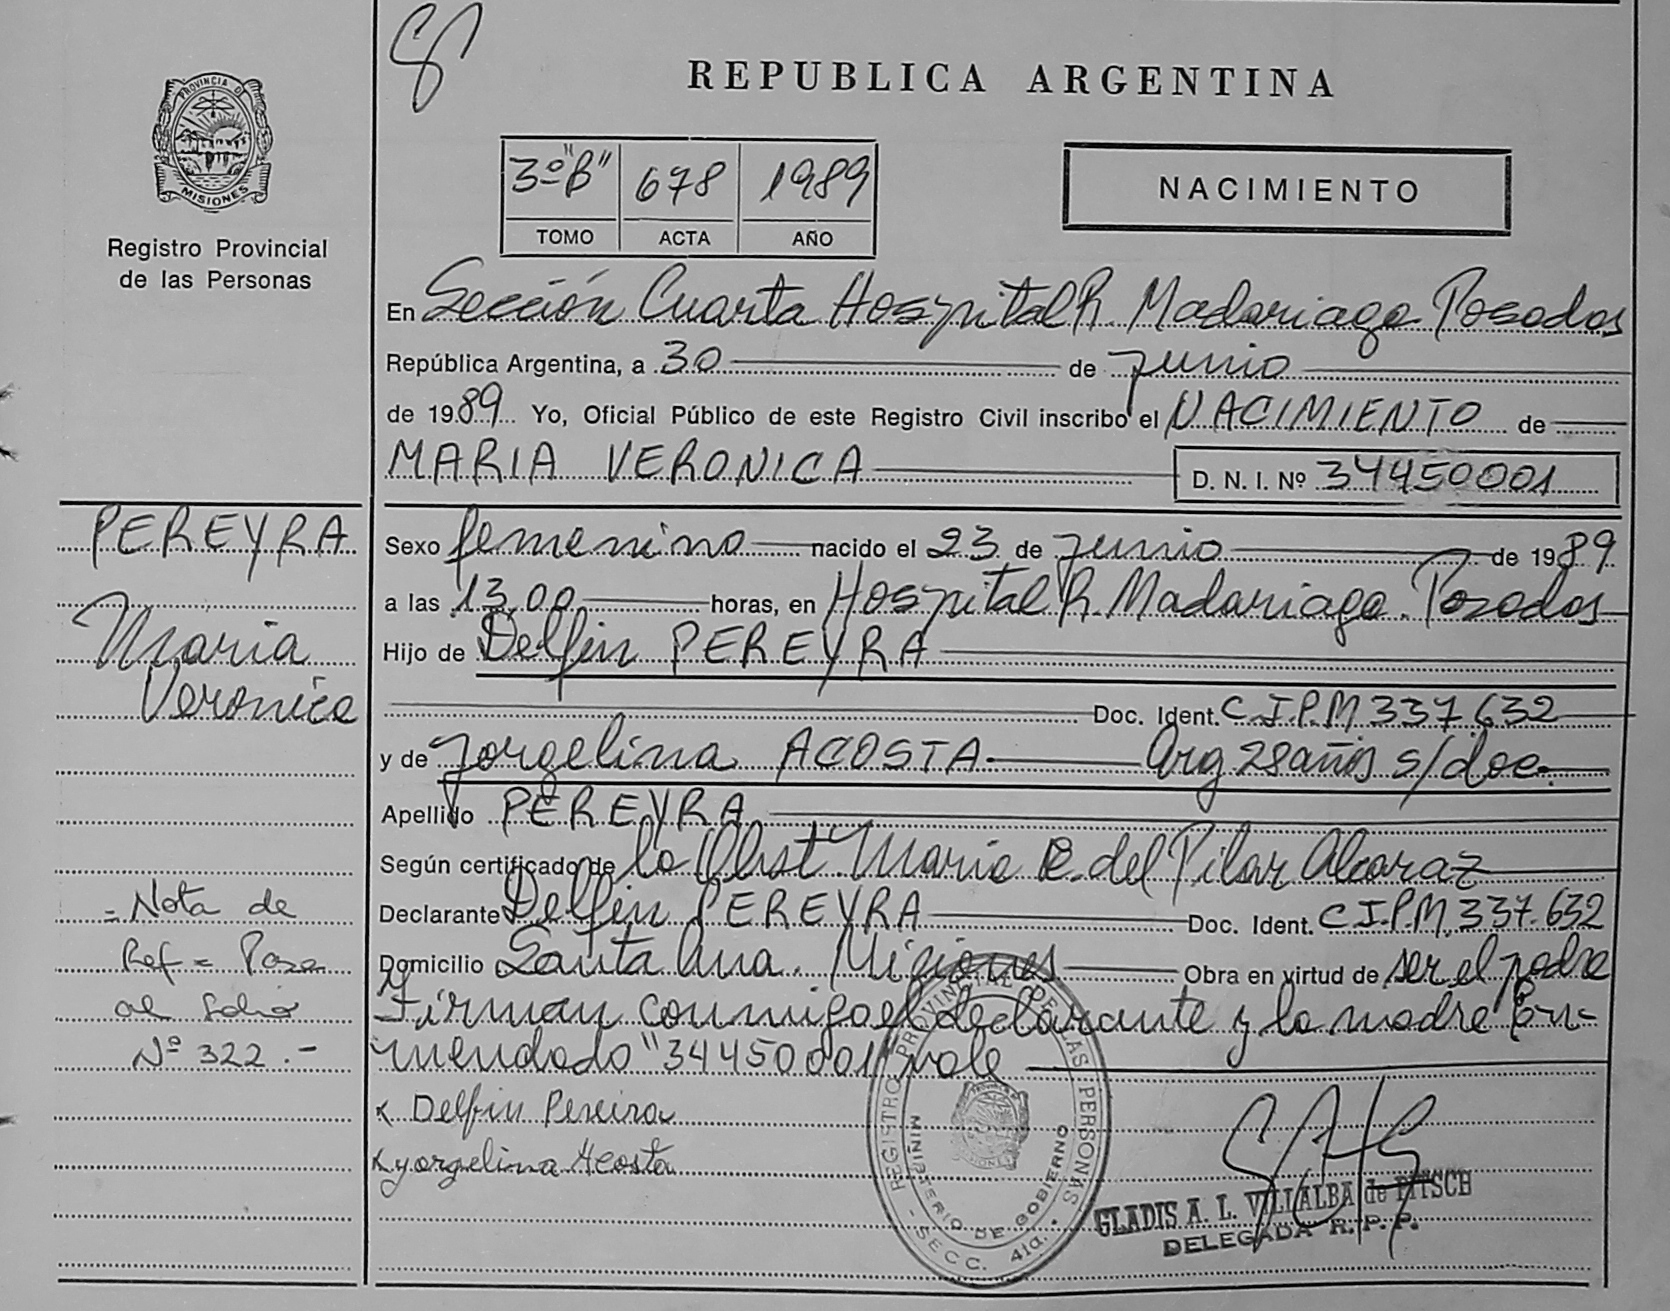 REPUBLICA ARGENTINA
PROVINCIA DE
MISIONES
Registro Provincial
de las Personas
3º "B" 678 1989
TOMO ACTA AÑO
NACIMIENTO
En Sección Cuarta Hospital R. Madariaga Posadas
República Argentina, a 30 de junio
de 1989 Yo, Oficial Público de este Registro Civil inscribo el NACIMIENTO de
MARIA VERONICA D. N. I. Nº 34450001
PEREYRA
Maria
Veronica
Sexo femenino nacido el 23 de junio de 1989
a las 13,00 horas, en Hospital R. Madariaga. Posadas
Hijo de Delfin PEREYRA
Doc. Ident. C.I.P.M 337.632
y de Jorgelina ACOSTA Arg 28 años s/doc.
Apellido PEREYRA
Según certificado de la Obst Maria E. del Pilar Alcaraz
Declarante Delfin PEREYRA Doc. Ident. C.I.P.M. 337.632
Domicilio Santa Ana. Misiones Obra en virtud de ser el padre
Firman conmigo el declarante y la madre En-
mendado "34450001" vale
= Nota de
Ref = Pasa
al folio
Nº 322.-
x Delfin Pereira
x yorgelina Acosta
REGISTRO PROVINCIAL DE LAS PERSONAS
MINISTERIO DE GOBIERNO
- SECC. 4ta. -
GLADIS A. L. VILLALBA de PITSCH
DELEGADA R. P. P.